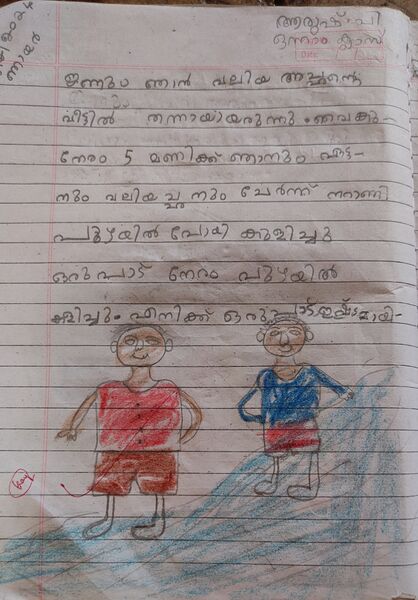 ആരുഷ്. പി
ഒന്നാം ക്ലാസ്
ഞായർ
ഇന്നും ഞാൻ വലിയ അച്ഛന്റെ
വീട്ടിൽ തന്നായായരുന്നു. വൈകു-
നേരം 5 മണിക്ക് ഞാനും ഏട്ട-
നും വലിയച്ഛനും ചേർന്ന് നറാണി
പുഴയിൽ പോയി കുളിച്ചു
ഒരുപാട് നേരം പുഴയിൽ
കുളിച്ചു. എനിക്ക് ഒരുപാട് ഇഷ്ടമായി-